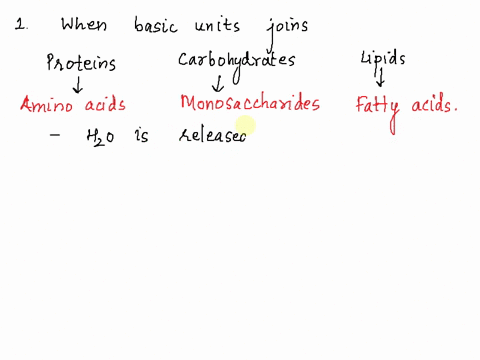 1. When basic units joins
Proteins Carbohydrates Lipids
↓ ↓ ↓
Amino acids Monosaccharides Fatty acids.
- H₂O is released